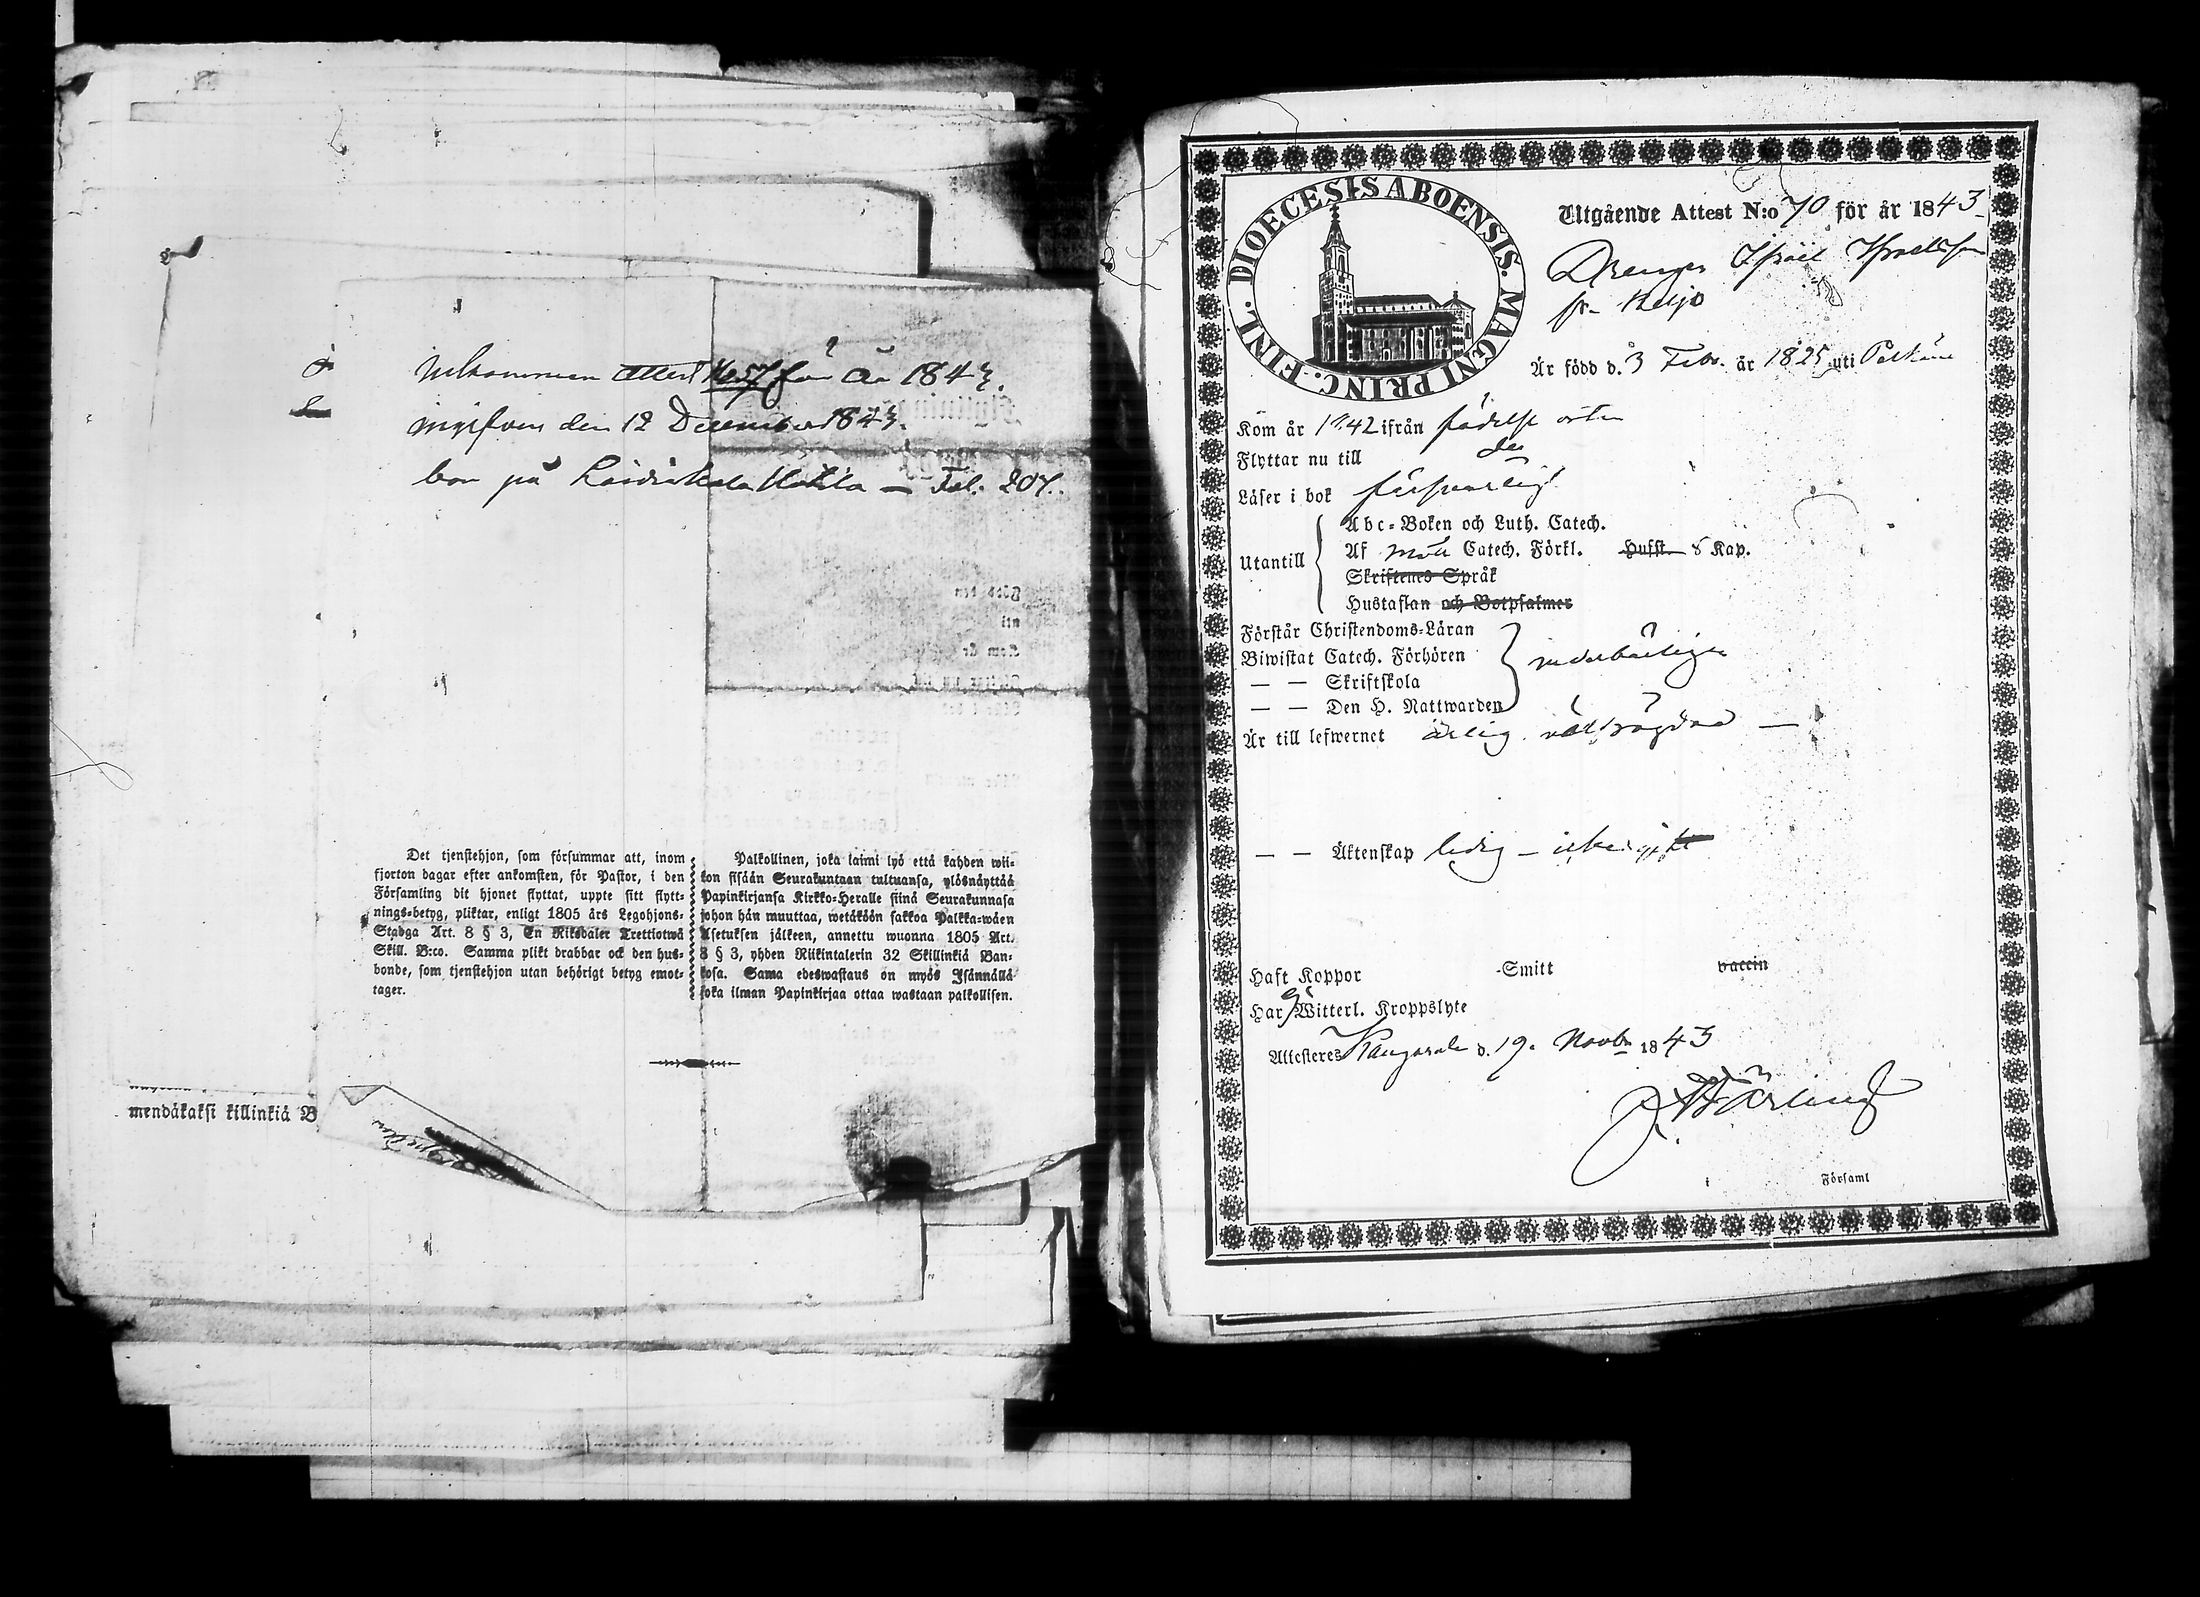 Inkommen Attest No 57 för År 1843.
ingifven den 12 December 1843.
bor på Laidikkala Uotila — Fol. 207.
Det tjenstehjon, som försummar att, inom
fjorton dagar efter ankomsten, för Pastor, i den
Församling dit hjonet flyttat, uppte sitt flytt-
nings-betyg, pliktar, enligt 1805 års Legohjons-
Stadga Art. 8 § 3, En Riksdaler Trettiotwå
Skill. B:co. Samma plikt drabbar ock den hus-
bonde, som tjenstehjon utan behörigt betyg emot-
tager.
Palkollinen, joka laimi lyö että kahden wii-
kon sisään Seurakuntaan tultuansa, ylösnäyttää
Papinkirjansa Kirkko-Heralle siinä Seurakunnasa
johon hän muuttaa, wetäköön sakkoa Palkka-wäen
Asetuksen jälkeen, annettu wuonna 1805 Art.
8 § 3, yhden Riikintalerin 32 Skillinkiä Ban-
kosa. Sama edeswastaus on myös Isännällä
joka ilman Papinkirjaa ottaa wastaan palkollisen.
mendäkaksi killinkiä B
DIOECESIS ABOENSIS. MAGNI PRINC. FINL.
Utgående Attest N:o 70 för år 1843
Drengen Israel Israelsson
fr. Keljo
Är född d. 3 Febr. år 1825 uti Pelkäne
Kom år 1842 ifrån födelse orten
Flyttar nu till do
Läser i bok försvarligt
Utantill
Abc-Boken och Luth. Catech.
Af Catech. Förkl. Husst. 8 Kap.
Skriftenes Språk
Hustaflan och Botpsalmer
Förstår Christendoms-Läran
Biwistat Catech. Förhören
— — Skriftskola
— — Den H. Nattwarden
Är till lefwernet ärlig
— — Äktenskap ledig —
Haft Koppor -Smitt vaccin
Har ej Witterl. Kroppslyte
Attesteres Kangasala d. 19. Novbr 1843
i Församl